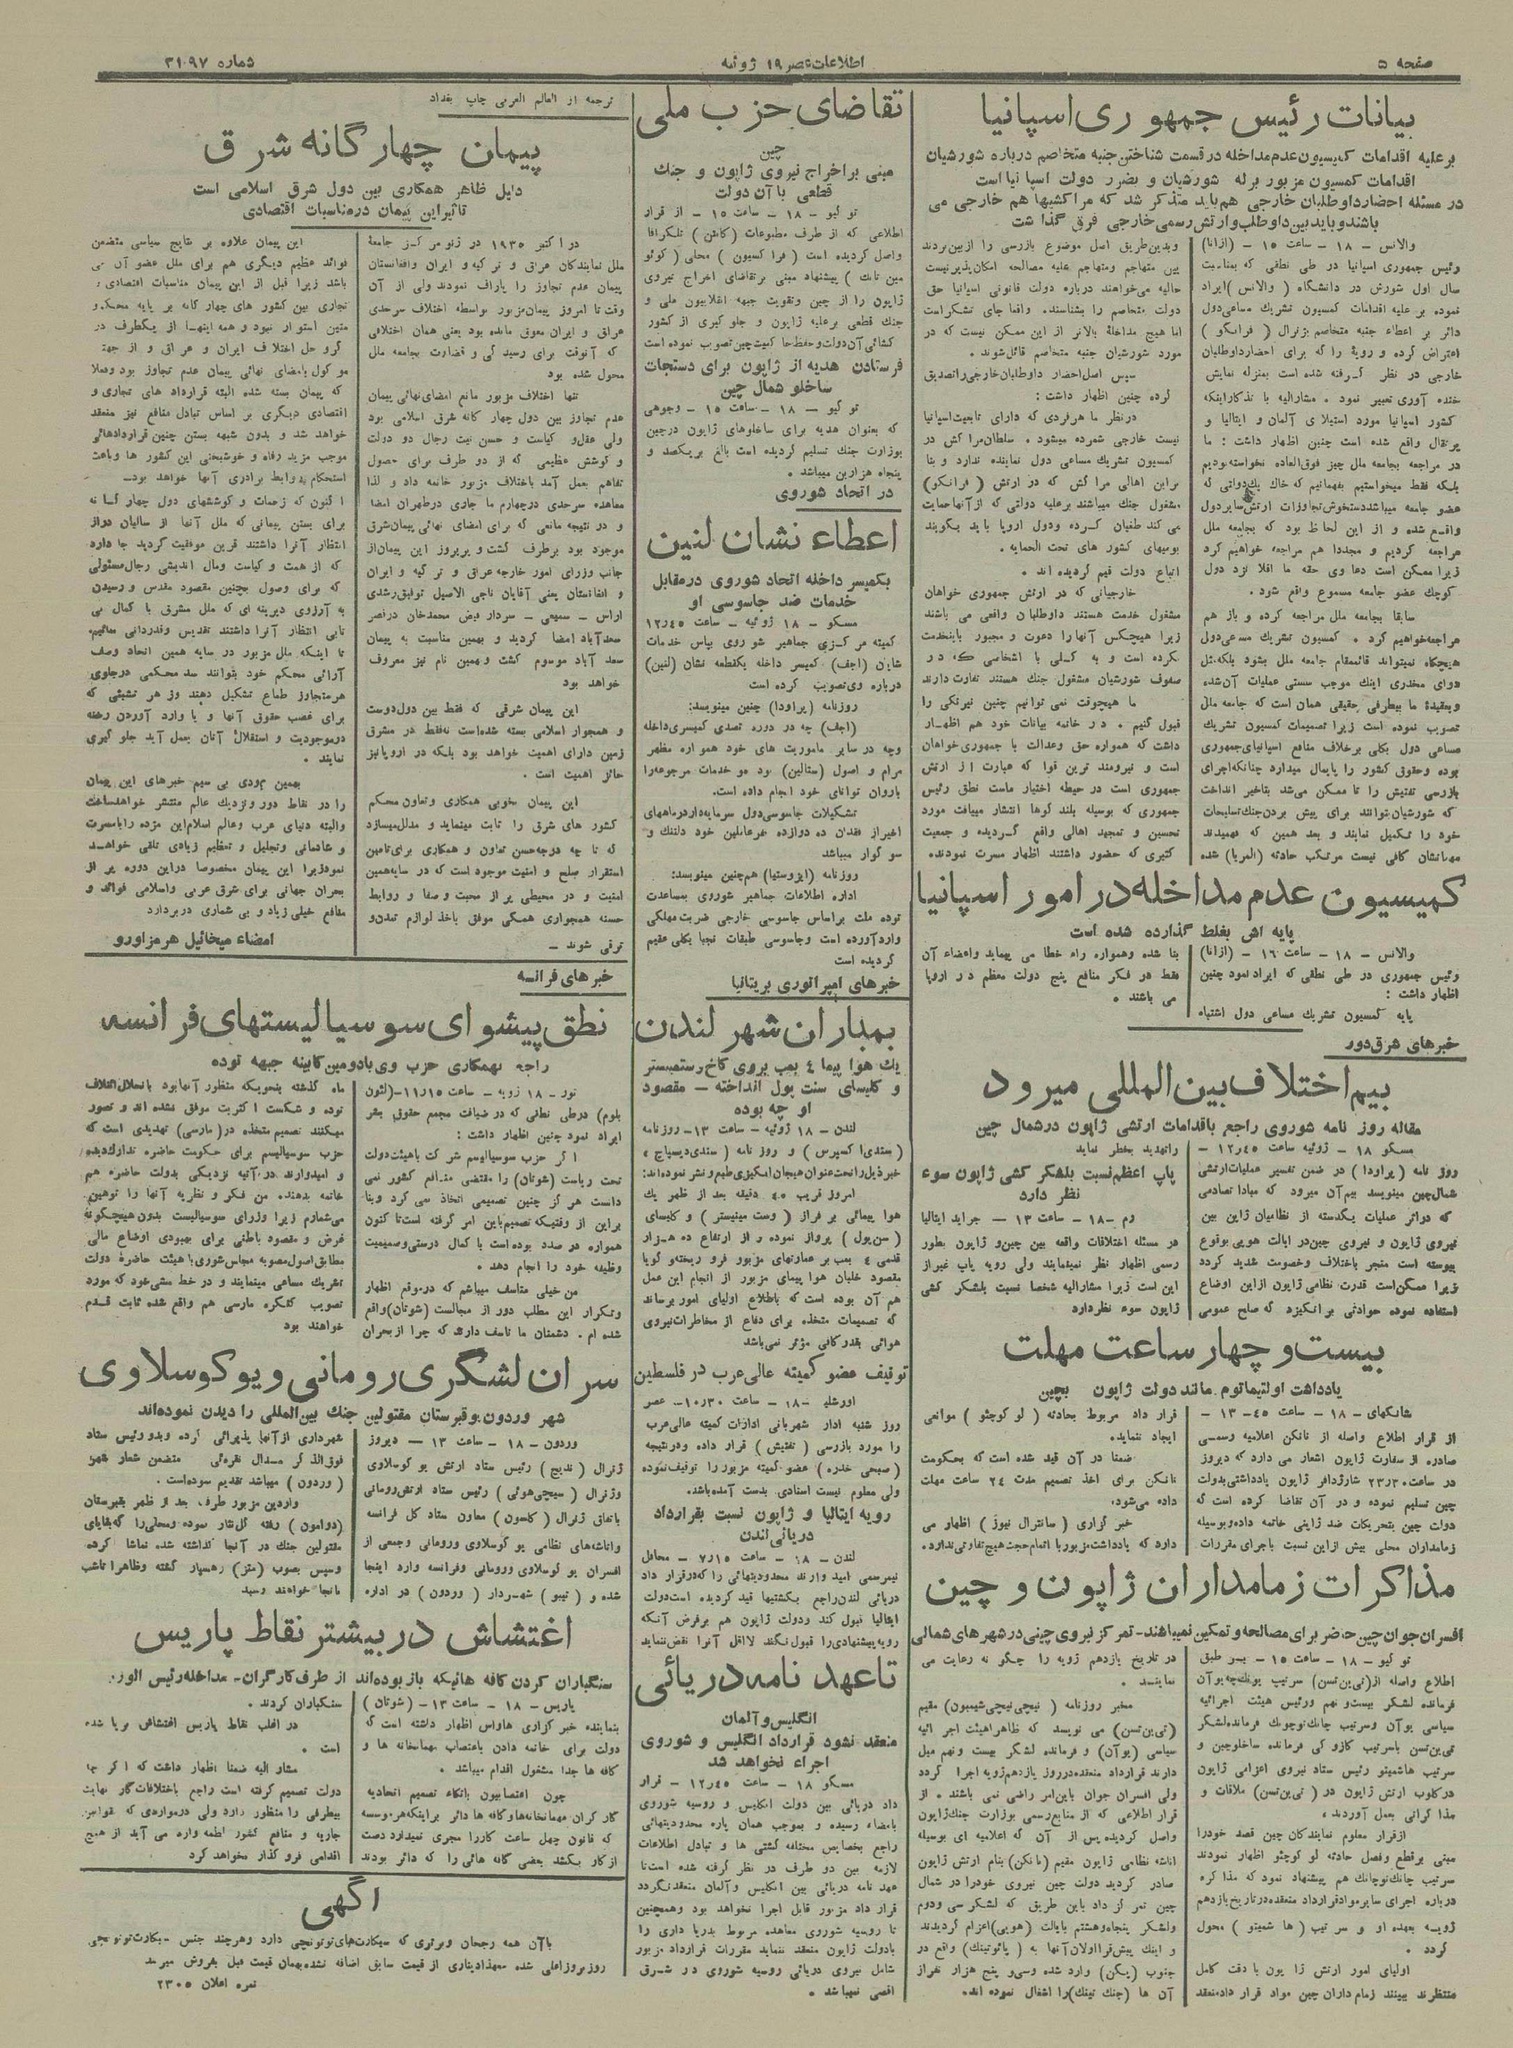 صفحه ۵
اطلاعات عصر ۱۹ ژوئیه
شماره ۳۱۰۹۷
بیانات رئیس جمهوری اسپانیا
برعلیه اقدامات کمیسیون عدم مداخله در قسمت شناختن جنبه متخاصم درباره شورشیان
اقدامات کمسیون مزبور برله شورشیان و بضرر دولت اسپانیا است
در مسئله احضار داوطلبان خارجی هم باید متذکر شد که مراکشیها هم خارجی می
باشند و باید بین داوطلب وارتش رسمی خارجی فرق گذاشت
والانس – ۱۸ – ساعت ۱۵ – (ازانا)
رئیس جمهوری اسپانیا در طی نطقی که بمناسبت
سال اول شورش در دانشگاه (والانس) ایراد
نموده بر علیه اقدامات کمسیون تشریک مساعی دول
دائر بر اعطاء جنبه متخاصم بژنرال (فرانکو)
اعتراض کرده و رویهٔ را که برای احضار داوطلبان
خارجی در نظر گرفته شده است بمنزله نمایش
خنده آوری تعبیر نمود . مشارالیه با تذکار اینکه
کشور اسپانیا مورد استیلای آلمان و ایتالیا و
پرتقال واقع شده است چنین اظهار داشت : ما
در مراجعه بجامعه ملل چیز فوق العاده نخواسته بودیم
بلکه فقط میخواستیم بفهمانیم که خاک یک دولتی که
عضو جامعه میباشد دستخوش تجاوزات ارتش سایر دول
واقع شده و از این لحاظ بود که بجامعه ملل
مراجعه کردیم و مجددا هم مراجعه خواهیم کرد
زیرا ممکن است دعاوی حقه ما اقلا نزد دول
کوچک عضو جامعه مسموع واقع شود .
سابقا بجامعه ملل مراجعه کرده و باز هم
مراجعه خواهیم کرد . کمسیون تشریک مساعی دول
هیچگاه نمیتواند قائممقام جامعه ملل بشود بلکه مثل
دوای مخدری اینک موجب سستی عملیات آن شده
وبعقیدهٔ ما بیطرفی حقیقی همان است که جامعه ملل
تصویب نموده است زیرا تصمیمات کمسیون تشریک
مساعی دول بکلی برخلاف منافع اسپانیای جمهوری
بوده وحقوق کشور را پایمال میدارد چنانکه اجرای
بازرسی تفتیش را تا ممکن می شد بتاخیر انداخت
که شورشیان توانند برای پیش بردن جنک تسلیحات
خود را تکمیل نمایند و بعد همین که فهمیدند
مهماتشان کافی نیست مرتکب حادثه (المریا) شده
وبدین طریق اصل موضوع بازرسی را از بین بردند
بین متهاجم ومتهاجم علیه مصالحه امکان پذیر نیست
حالیه می خواهند درباره دولت قانونی اسپانیا حق
دولت متخاصم را بشناسند. واقعا جای تشکر است
اما هیچ مداخلهٔ بالاتر از این ممکن نیست که در
مورد شورشیان جنبه متخاصم قائل شوند .
سپس اصل احضار داوطلبان خارجی را تصدیق
کرده چنین اظهار داشت :
در نظر ما هر فردی که دارای تابعیت اسپانیا
نیست خارجی شمرده میشود . سلطان مراکش در
کمسیون تشریک مساعی دول نماینده ندارد و بنا
براین اهالی مراکش که در ارتش (فرانکو)
مشغول جنک میباشند برعلیه دولتی که از آنها حمایت
می کند طغیان کرده ودول اروپا باید بگویند
بومیهای کشور های تحت الحمایه .
اتباع دولت قیم گردیده اند .
خارجیانی که در ارتش جمهوری خواهان
مشغول خدمت هستند داوطلبان واقعی می باشند
زیرا هیچکس آنها را دعوت و مجبور باینخدمت
نکرده است و به کلی با اشخاصی که در
صفوف شورشیان مشغول جنک هستند تفاوت دارند
ما هیچوقت نمی توانیم چنین نیرنگی را
قبول کنیم . در خاتمه بیانات خود هم اظهار
داشت که همواره حق وعدالت با جمهوری خواهان
است و نیرومند ترین قوا که عبارت از ارتش
جمهوری است در حیطه اختیار ماست نطق رئیس
جمهوری که بوسیله بلند گوها انتشار مییافت مورد
تحسین و تمجید اهالی واقع گردیده و جمعیت
کثیری که حضور داشتند اظهار مسرت نمودند.
کمیسیون عدم مداخله در امور اسپانیا
پایه اش بغلط گذارده شده است
والانس – ۱۸ – ساعت ۱۶ – (ازانا)
رئیس جمهوری در طی نطقی که ایراد نمود چنین
اظهار داشت :
پایه کمسیون تشریک مساعی دول اشتباه
بنا شده وهمواره راه خطا می پیماید واعضاء آن
فقط در فکر منافع پنج دولت معظم در اروپا
می باشند .
خبرهای شرق دور
بیم اختلاف بین المللی میرود
مقاله روز نامه شوروی راجع باقدامات ارتشی ژاپون در شمال چین
مسکو ۱۸ – ژوئیه ساعت ۱۲٫۴۵ –
روزنامه (پراودا) در ضمن تفسیر عملیات ارتشی
شمال چین مینویسد بیم آن میرود که مبادا تصادمی
که دراثر عملیات یکدسته از نظامیان ژاپن بین
نیروی ژاپون و نیروی چین در ایالت هوپی بوقوع
پیوسته است منجر باختلاف وخصومت شدید گردد
زیرا ممکن است قدرت نظامی ژاپون از این اوضاع
استفاده نموده حوادثی برانگیزد که صلح عمومی
را تهدید بخطر نماید
پاپ اعظم نسبت بلشکر کشی ژاپون سوء
نظر دارد
رم – ۱۸ – ساعت ۱۳ – جراید ایتالیا
در مسئله اختلافات واقعه بین چین و ژاپون بطور
رسمی اظهار نظر نمینمایند ولی رویه پاپ غیر از
این است زیرا مشارالیه شخصا نسبت بلشکر کشی
ژاپون سوء نظر دارد
بیست و چهار ساعت مهلت
یادداشت اولتیماتوم مانند دولت ژاپون بچین
شانگهای – ۱۸ – ساعت ۱۳٫۴۵ –
از قرار اطلاع واصله از نانکن اعلامیه رسمی
صادره از سفارت ژاپون اشعار می دارد که دیروز
در ساعت ۲۳٫۳۰ شارژدافر ژاپون یادداشتی بدولت
چین تسلیم نموده و در آن تقاضا کرده است که
دولت چین بتحریکات ضد ژاپنی خاتمه داده وبوسیله
زمامداران محلی بیش از این نسبت باجرای مقررات
قرار داد مربوط بحادثه (لوکوچئو) موانعی
ایجاد ننماید.
ضمنا در آن قید شده است که بحکومت
نانکن برای اخذ تصمیم مدت ۲۴ ساعت مهلت
داده می شود.
خبر گزاری (سانترال نیوز) اظهار می
دارد که یادداشت مزبور با اتمام حجت هیچ تفاوتی ندارد.
مذاکرات زمامداران ژاپون و چین
افسران جوان چین حاضر برای مصالحه و تمکین نمیباشند – تمرکز نیروی چینی در شهرهای شمالی
توکیو – ۱۸ – ساعت ۱۵ – بسر طبق
اطلاع واصله از (تی ین تسن) سرتیپ یونک چه یوآن
فرمانده لشکر بیست و نهم ورئیس هیئت اجرائیه
سیاسی یوآن وسرتیپ چانک توچونک فرمانده لشکر
تی ین تسن باسرتیپ کازوکی فرمانده ساخلوچین و
سرتیپ هاشیمتو رئیس ستاد نیروی اعزامی ژاپون
درکلوب ارتش ژاپون در (تی ین تسن) ملاقات و
مذاکراتی بعمل آوردند .
از قرار معلوم نمایندگان چین قصد خود را
مبنی بر قطع و فصل حادثه لوکوچئو اظهار نمودند
سرتیپ چانک توچانک هم پیشنهاد نمود که مذاکره
درباره اجرای سایر مواد قرار داد منعقده در تاریخ یازدهم
ژویسه بعهده او و سرتیپ (هاشمیتو) محول
گردد .
اولیای امور ارتش ژاپون با دقت کامل
منتظرند ببینند زمام داران چین مواد قرارداد منعقد
در تاریخ یازدهم ژویه را چگونه رعایت می
نمایند.
مخبر روزنامه (نیچی نیچی شیمبون) مقیم
(تی ین تسن) می نویسد که ظاهرا هیئت اجرائیه
سیاسی (یوآن) و فرمانده لشکر بیست ونهم میل
دارند قرارداد منعقده در روز یازدهم ژویه اجرا گردد
ولی افسران جوان باین امر راضی نمی باشند . از
قرار اطلاعی که از منابع رسمی بوزارت جنک ژاپون
واصل گردیده پس از آن که اعلامیه ای بوسیله
اتاشه نظامی ژاپون مقیم (نانکن) بنام ارتش ژاپون
صادر گردید دولت چین نیروی خود را در شمال
چین تمرکز داد باین طریق که لشکر سی ودوم
ولشکر پنجاه وهشتم بایالت (هوپی) اعزام گردیدند
و اینک پیش قراولان آنها به (پائوتینک) واقع در
جنوب (پکن) وارد شده وسی و پنج هزار نفر از
آن ها (جنک تینک) را اشغال نموده اند.
تقاضای حزب ملی
چین
مبنی بر اخراج نیروی ژاپون و جنک
قطعی با آن دولت
توکیو – ۱۸ – ساعت ۱۵ – از قرار
اطلاعی که از طرف مطبوعات (کانتن) تلگرافا
واصل گردیده است (فراکسیون) محلی (کوئو
مین تانک) پیشنهاد مبنی بر تقاضای اخراج نیروی
ژاپون را از چین وتقویت جبهه انقلابیون ملی و
جنک قطعی برعلیه ژاپون و جلوگیری از کشور
گشائی آن دولت وحفظ حاکمیت چین تصویب نموده است
فرستادن هدیه از ژاپون برای دستجات
ساخلو شمال چین
توکیو – ۱۸ – ساعت ۱۵ – وجوهی
که بعنوان هدیه برای ساخلوهای ژاپون در چین
بوزارت جنک تسلیم گردیده است بالغ بریکصد و
پنجاه هزار ین میباشد .
در اتحاد شوروی
اعطاء نشان لنین
بکمیسر داخله اتحاد شوروی در مقابل
خدمات ضد جاسوسی او
مسکو – ۱۸ ژوئیه – ساعت ۱۲٫۴۵
کمیته مرکزی جماهیر شوروی بپاس خدمات
شایان (اجف) کمیسر داخله یکقطعه نشان (لنین)
درباره وی تصویب کرده است
روزنامه (پراودا) چنین مینویسد:
(اجف) چه در دوره تصدی کمیسری داخله
وچه در سایر ماموریت های خود همواره مظهر
مرام و اصول (ستالین) بوده و خدمات مرجوعه را
با روان توانای خود انجام داده است.
تشکیلات جاسوسی دول سرمایه دار در ماههای
اخیر از فقدان ده دوازده نفر عاملین خود دلتنک و
سوگوار میباشد
روزنامه (ایزوستیا) همچنین مینویسد:
اداره اطلاعات جماهیر شوروی بمساعدت
توده ملت براساس جاسوسی خارجی ضربت مهلکی
وارد آورده است وجاسوسی طبقات نجبا بکلی عقیم
گردیده است
خبرهای امپراتوری بریتانیا
بمباران شهر لندن
یک هوا پیما ۴ بمب بروی کاخ وستمینستر
و کلیسای سنت پول انداخته – مقصود
او چه بوده
لندن – ۱۸ ژوئیه – ساعت ۱۳ – روزنامه
(ستدی اکسپرس) و روز نامه (سندی دیسپاچ)
خبر ذیل را تحت عنوان هیجان انگیزی طبع و نشر نموده اند:
امروز قریب ۴۵ دقیقه بعد از ظهر یک
هوا پیمائی بر فراز (وست مینیستر) و کلیسای
(سن پول) پرواز نموده و از ارتفاع ده هزار
قدمی ۴ بمب بر عمارتهای مزبور فرو ریخته و گویا
مقصود خلبان هوا پیمای مزبور از انجام این عمل
هم آن بوده است که باطلاع اولیای امور برساند
که تصمیمات متخذه برای دفاع از مخاطرات نیروی
هوائی بقدر کافی مؤثر نمی باشد
توقیف عضو کمیته عالی عرب در فلسطین
اورشلیم – ۱۸ – ساعت ۱۰٫۳۰ – عصر
روز شنبه ادار شهربانی ادارات کمیته عالی عرب
را مورد بازرسی (تفتیش) قرار داده و در نتیجه
(صبحی خدره) عضو کمیته مزبور را توقیف نموده
ولی معلوم نیست اسنادی بدست آمده باشد.
رویه ایتالیا و ژاپون نسبت بقرارداد
دریائی لندن
لندن – ۱۸ – ساعت ۷٫۱۵ – محافل
نیمرسمی امید وارند محدودیتهائی را که در قرار داد
دریائی لندن راجع بکشتیها قید گردیده است دولت
ایتالیا قبول کند ودولت ژاپون هم بر فرض آنکه
رویه پیشنهادی را قبول نکند لا اقل آنرا نقض ننماید
تا عهد نامه دریائی
انگلیس و آلمان
منعقد نشود قرارداد انگلیس و شوروی
اجراء نخواهد شد
مسکو ۱۸ – ساعت ۱۲٫۴۵ – قرار
داد دریائی بین دولت انگلیس و روسیه شوروی
بامضاء رسیده و بموجب همان پاره محدودیتهائی
راجع بخصایص مختلفه کشتی ها و تبادل اطلاعات
لازمه بین دو طرف در نظر گرفته شده است تا
عهد نامه دریائی بین انگلیس و آلمان منعقد نگردد
قرار داد مزبور قابل اجرا نخواهد بود وهمچنین
تا روسیه شوروی معاهده مربوط بدریا داری را
با دولت ژاپون منعقد ننماید مقررات قرارداد مزبور
شامل نیروی دریائی روسیه شوروی در شرق
اقصی نمیباشد .
ترجمه از العالم العربی چاپ بغداد
پیمان چهار گانه شرق
دلیل ظاهر همکاری بین دول شرق اسلامی است
تاثیر این پیمان در مناسبات اقتصادی
در اکتبر ۱۹۳۵ در ژنو مرکز جامعهٔ
ملل نمایندگان عراق و ترکیه و ایران وافغانستان
پیمان عدم تجاوز را پاراف نمودند ولی از آن
وقت تا امروز پیمان مزبور بواسطه اختلاف سرحدی
عراق و ایران معوق مانده بود یعنی همان اختلافی
که آنوقت برای رسیدگی و قضاوت بجامعه ملل
محول شده بود
تنها اختلاف مزبور مانع امضای نهائی پیمان
عدم تجاوز بین دول چهار گانه شرق اسلامی بود
ولی عقل و کیاست و حسن نیت رجال دو دولت
و کوشش عظیمی که از دو طرف برای حصول
تفاهم بعمل آمد باختلاف مزبور خاتمه داد و لذا
معاهده سرحدی در چهارم ما جاری در طهران امضا
و در نتیجه مانعی که برای امضای نهائی پیمان شرق
موجود بود برطرف گشت و پریروز این پیمان از
جانب وزرای امور خارجه عراق و ترکیه و ایران
و افغانستان یعنی آقایان ناجی الاصیل توفیق رشدی
اراس – سمیعی – سردار فیض محمدخان در قصر
سعد آباد امضا گردید و بهمین مناسبت به پیمان
سعد آباد موسوم گشت و بهمین نام نیز معروف
خواهد بود
این پیمان شرقی که فقط بین دول دوست
و همجوار اسلامی بسته شده است نه فقط در مشرق
زمین دارای اهمیت خواهد بود بلکه در اروپا نیز
حائز اهمیت است .
این پیمان بخوبی همکاری وتعاون محکم
کشور های شرق را ثابت مینماید و مدلل میسازد
که تا چه درجه حسن تعاون و همکاری برای تامین
استقرار صلح و امنیت موجود است که در سایه همین
امنیت و در محیطی پر از محبت و صفا و روابط
حسنه همجواری همگی موفق باخذ لوازم تمدن و
ترقی شوند –
این پیمان علاوه بر نتایج سیاسی متضمن
فوائد عظیم دیگری هم برای ملل عضو آن می
باشد زیرا قبل از این پیمان مناسبات اقتصادی و
تجاری بین کشور های چهار گانه بر پایه محکم و
متین استوار نبود و همه اینها از یکطرف در
گرو حل اختلاف ایران و عراق و از جهتی
موکول بامضای نهائی پیمان عدم تجاوز بود وفعلا
که پیمان بسته شده البته قراردادهای تجاری و
اقتصادی دیگری بر اساس تبادل منافع نیز منعقد
خواهد شد و بدون شبهه بستن چنین قراردادهائی
موجب مزید رفاه و خوشبختی این کشور ها و باعث
استحکام پیروابط برادری آنها خواهد بود –
اکنون که زحمات و کوششهای دول چهار گانه
برای بستن پیمانی که ملل آنها از سالیان دراز
انتظار آنرا داشتند قرین موفقیت گردید جا دارد
که از همت و کیاست ومال اندیشی رجال مسئولی
که برای وصول بچنین مقصود مقدس و رسیدن
به آرزوی دیرینه ای که ملل مشرق با کمال بی
تابی انتظار آنرا داشتند تقدیس وقدردانی نمائیم.
تا اینکه ملل مزبور در سایه همین اتحاد وصف
آرائی محکم خود بتوانند سد محکمی در جلوی
هر متجاوز طماع تشکیل دهند و از هر تشبثی که
برای غصب حقوق آنها و یا وارد آوردن رخنه
در موجودیت و استقلال آنان بعمل آید جلوگیری
نمایند .
بهمین زودی بی سیم خبرهای این پیمان
را در نقاط دور ونزدیک عالم منتشر خواهد ساخت
والبته دنیای عرب وعالم اسلام این مژده را بامسرت
و شادمانی وتجلیل و تعظیم زیادی تلقی خواهد
نمود زیرا این پیمان مخصوصا در این دوره پر از
بحران جهانی برای شرق عربی واسلامی فوائد و
منافع خیلی زیاد و بی شماری در بردارد
امضاء میخائیل هرمز اورو
خبرهای فرانسه
نطق پیشوای سوسیالیستهای فرانسه
راجع بهمکاری حزب وی با دومین کابینه جبهه توده
نور – ۱۸ ژویه – ساعت ۱۱٫۱۵ – (لئون
بلوم) در طی نطقی که در ضیافت مجمع حقوق بشر
ایراد نمود چنین اظهار داشت :
اگر حزب سوسیالیسم شرکت با هیئت دولت
تحت ریاست (شوتان) را مقتضی منافع کشور نمی
دانست هرگز چنین تصمیمی اتخاذ نمی کرد وبنا
براین از وقتیکه تصمیم باین امر گرفته است تا کنون
همواره در صدد بوده است با کمال درستی وصمیمیت
وظیفه خود را انجام دهد .
من خیلی متاسف میباشم که در موقع اظهار
وتکرار این مطلب دور از مجالست (شوتان) واقع
شده ام . دشمنان ما تاسف دارند که چرا از بحران
ماه گذشته بنحویکه منظور آنها بود بانحلال ائتلاف
توده و شکست اکثریت موفق نشده اند و تصور
میکنند تصمیم متخذه در (مارسی) تهدیدی است که
حزب سوسیالیسم برای حکومت حاضره تدارک دیده
و امیدوارند در آتیه نزدیکی بدولت حاضره هم
خاتمه بدهند. من فکر و نظریه آنها را توهین
می شمارم زیرا وزرای سوسیالیست بدون هیچگونه
غرض و مقصود باطنی برای بهبودی اوضاع مالی
مطابق اصول مصوبه مجلس شوری با هیئت حاضرهٔ دولت
تشریک مساعی مینمایند و در خط مشی خود که مورد
تصویب کنگره مارسی هم واقع شده ثابت قدم
خواهند بود
سران لشگری رومانی و یوگوسلاوی
شهر وردون بوقبرستان مقتولین جنک بین المللی را دیدن نموده اند
وردون – ۱۸ – ساعت ۱۳ – دیروز
ژنرال (ندیچ) رئیس ستاد ارتش یوگوسلاوی
وژنرال (سیچی هوئی) رئیس ستاد ارتش رومانی
باتفاق ژنرال (کلسون) معاون ستاد کل فرانسه
واتاشه های نظامی یوگوسلاوی ورومانی وجمعی از
افسران یوگوسلاوی ورومانی وفرانسه وارد اینجا
شده و (تیبو) شهردار (وردون) در اداره
شهرداری از آنها پذیرائی کرده وبدو رئیس ستاد
فوق الذکر مدال نقره ئی متضمن شعار شهر
(وردون) میباشد تقدیم نموده است.
واردین مزبور طرف بعد از ظهر بقبرستان
(دوامون) رفته گل نثار نموده ومحلی را که بقایای
مقتولین جنک در آنجا گذاشته شده تماشا کرده
وسپس بصوب (متز) رهسپار گشته وظاهرا تاشب
بانجا خواهند رسید
اغتشاش در بیشتر نقاط پاریس
سنگباران کردن کافه هائیکه باز بوده اند از طرف کارگران – مداخله رئیس الوزراء
پاریس – ۱۸ – ساعت ۱۳ – (شوتان)
بنماینده خبر گزاری هاواس اظهار داشته است که
دولت برای خاتمه دادن باعتصاب مهمانخانه ها و
کافه ها جدا مشغول اقدام میباشد .
چون اعتصابیون باتکاء تصمیم اتحادیه
کارگران مهمانخانه ها و کافه ها دائر براینکه هر موسسه
که قانون چهل ساعت کار را مجری نمیدارد دست
از کار بکشد بعضی کافه هائی را که دائر بودند
سنگباران کردند .
در اغلب نقاط پاریس اغتشاش برپا شده
است .
مشار الیه ضمنا اظهار داشت که اگر چه
دولت تصمیم گرفته است راجع باختلافات کار نهایت
بیطرفی را منظور دارد ولی در مواردی که قوانین
جاریه و منافع کشور لطمه وارد می آید از هیچ
اقدامی فروگذار نخواهد کرد
آگهی
با آن همه رجحان وبرتری که سیگارت های توتونچی دارد وهرچند جنس سیگارت توتونچی
روز بروز اعلی شده معهذا دیناری از قیمت سابق اضافه نشده بهمان قیمت قبل بفروش میرسد
نمره اعلان ۲۳۰۵